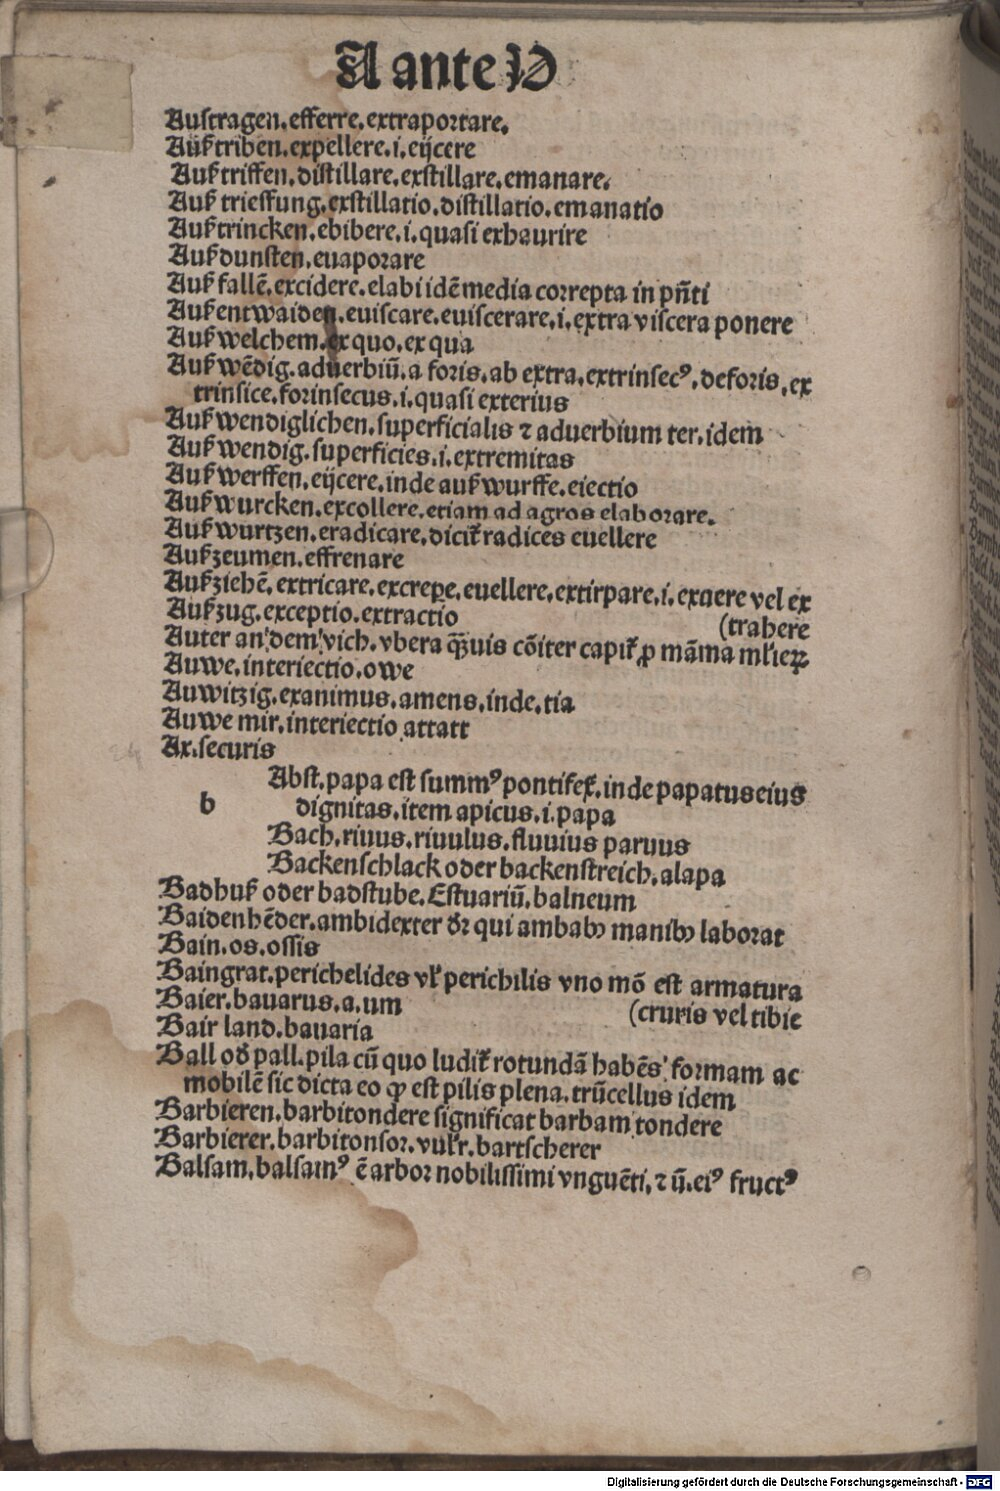 A ante V
Austragen.efferre.extraportare.
Außtriben.expellere.i.eijcere
Außtriffen.distillare.exstillare.emanare.
Auß trieffung.exstillatio.distillatio.emanatio
Außtrincken.ebibere.i.quasi exhaurire
Außdunsten.euaporare
Auß fallē.excidere.elabi idē media correpta in pn̄ti
Außentwaiden.euiscare.euiscerare.i.extra viscera ponere
Auß welchem.ex quo.ex qua
Auß wēdig.aduerbiū.a foris.ab extra.extrinsecꝰ.deforis.ex
trinsice.forinsecus.i.quasi exterius
Auß wendiglichen.superficialis ⁊ aduerbium ter.idem
Auß wendig.superficies.i.extremitas
Auß werffen.eijcere.inde auß wurffe.eiectio
Auß wurcken.excollere.etiam ad agros elaborare.
Auß wurtzen.eradicare.dicit̃ radices euellere
Außzeumen.effrenare
Außziehē.extricare.excreꝑe.euellere.extirpare.i.exuere vel ex
Außzug.exceptio.extractio (trahere
Auter an' dem' vich.vbera q̄uis cōiter capit̃ ꝓ māma ml'ieꝝ
Auwe.interiectio.owe
Auwitzig.exanimus.amens.inde.tia
Auwe mir.interiectio attatt
Ax.securis
Abst.papa est summꝰ pontifex̃.inde papatus eius
b dignitas.item apicus.i.papa
Bach.riuus.riuulus.fluuius paruus
Backenschlack oder backenstreich.alapa
Badhuß oder badstube.Estuariū.balneum
Baidenhēder.ambidexter dr̄ qui ambabꝫ manibꝫ laborat
Bain.os.ossis
Baingrat.perichelides vl' perichilis vno mō est armatura
Baier.bauarus.a.um (cruris vel tibie
Bair land.bauaria
Ball od' pall.pila cū quo ludit̃ rotundā habēs' formam ac
mobilē sic dicta eo ꝙ est pilis plena.trūcellus idem
Barbieren.barbitondere significat barbam tondere
Barbierer.barbitonsor.vul'r.bartscherer
Balsam.balsamꝰ ē arbor nobilissimi vnguēti.⁊ ū.eiꝰ fructꝰ
Digitalisierung gefördert durch die Deutsche Forschungsgemeinschaft - DFG